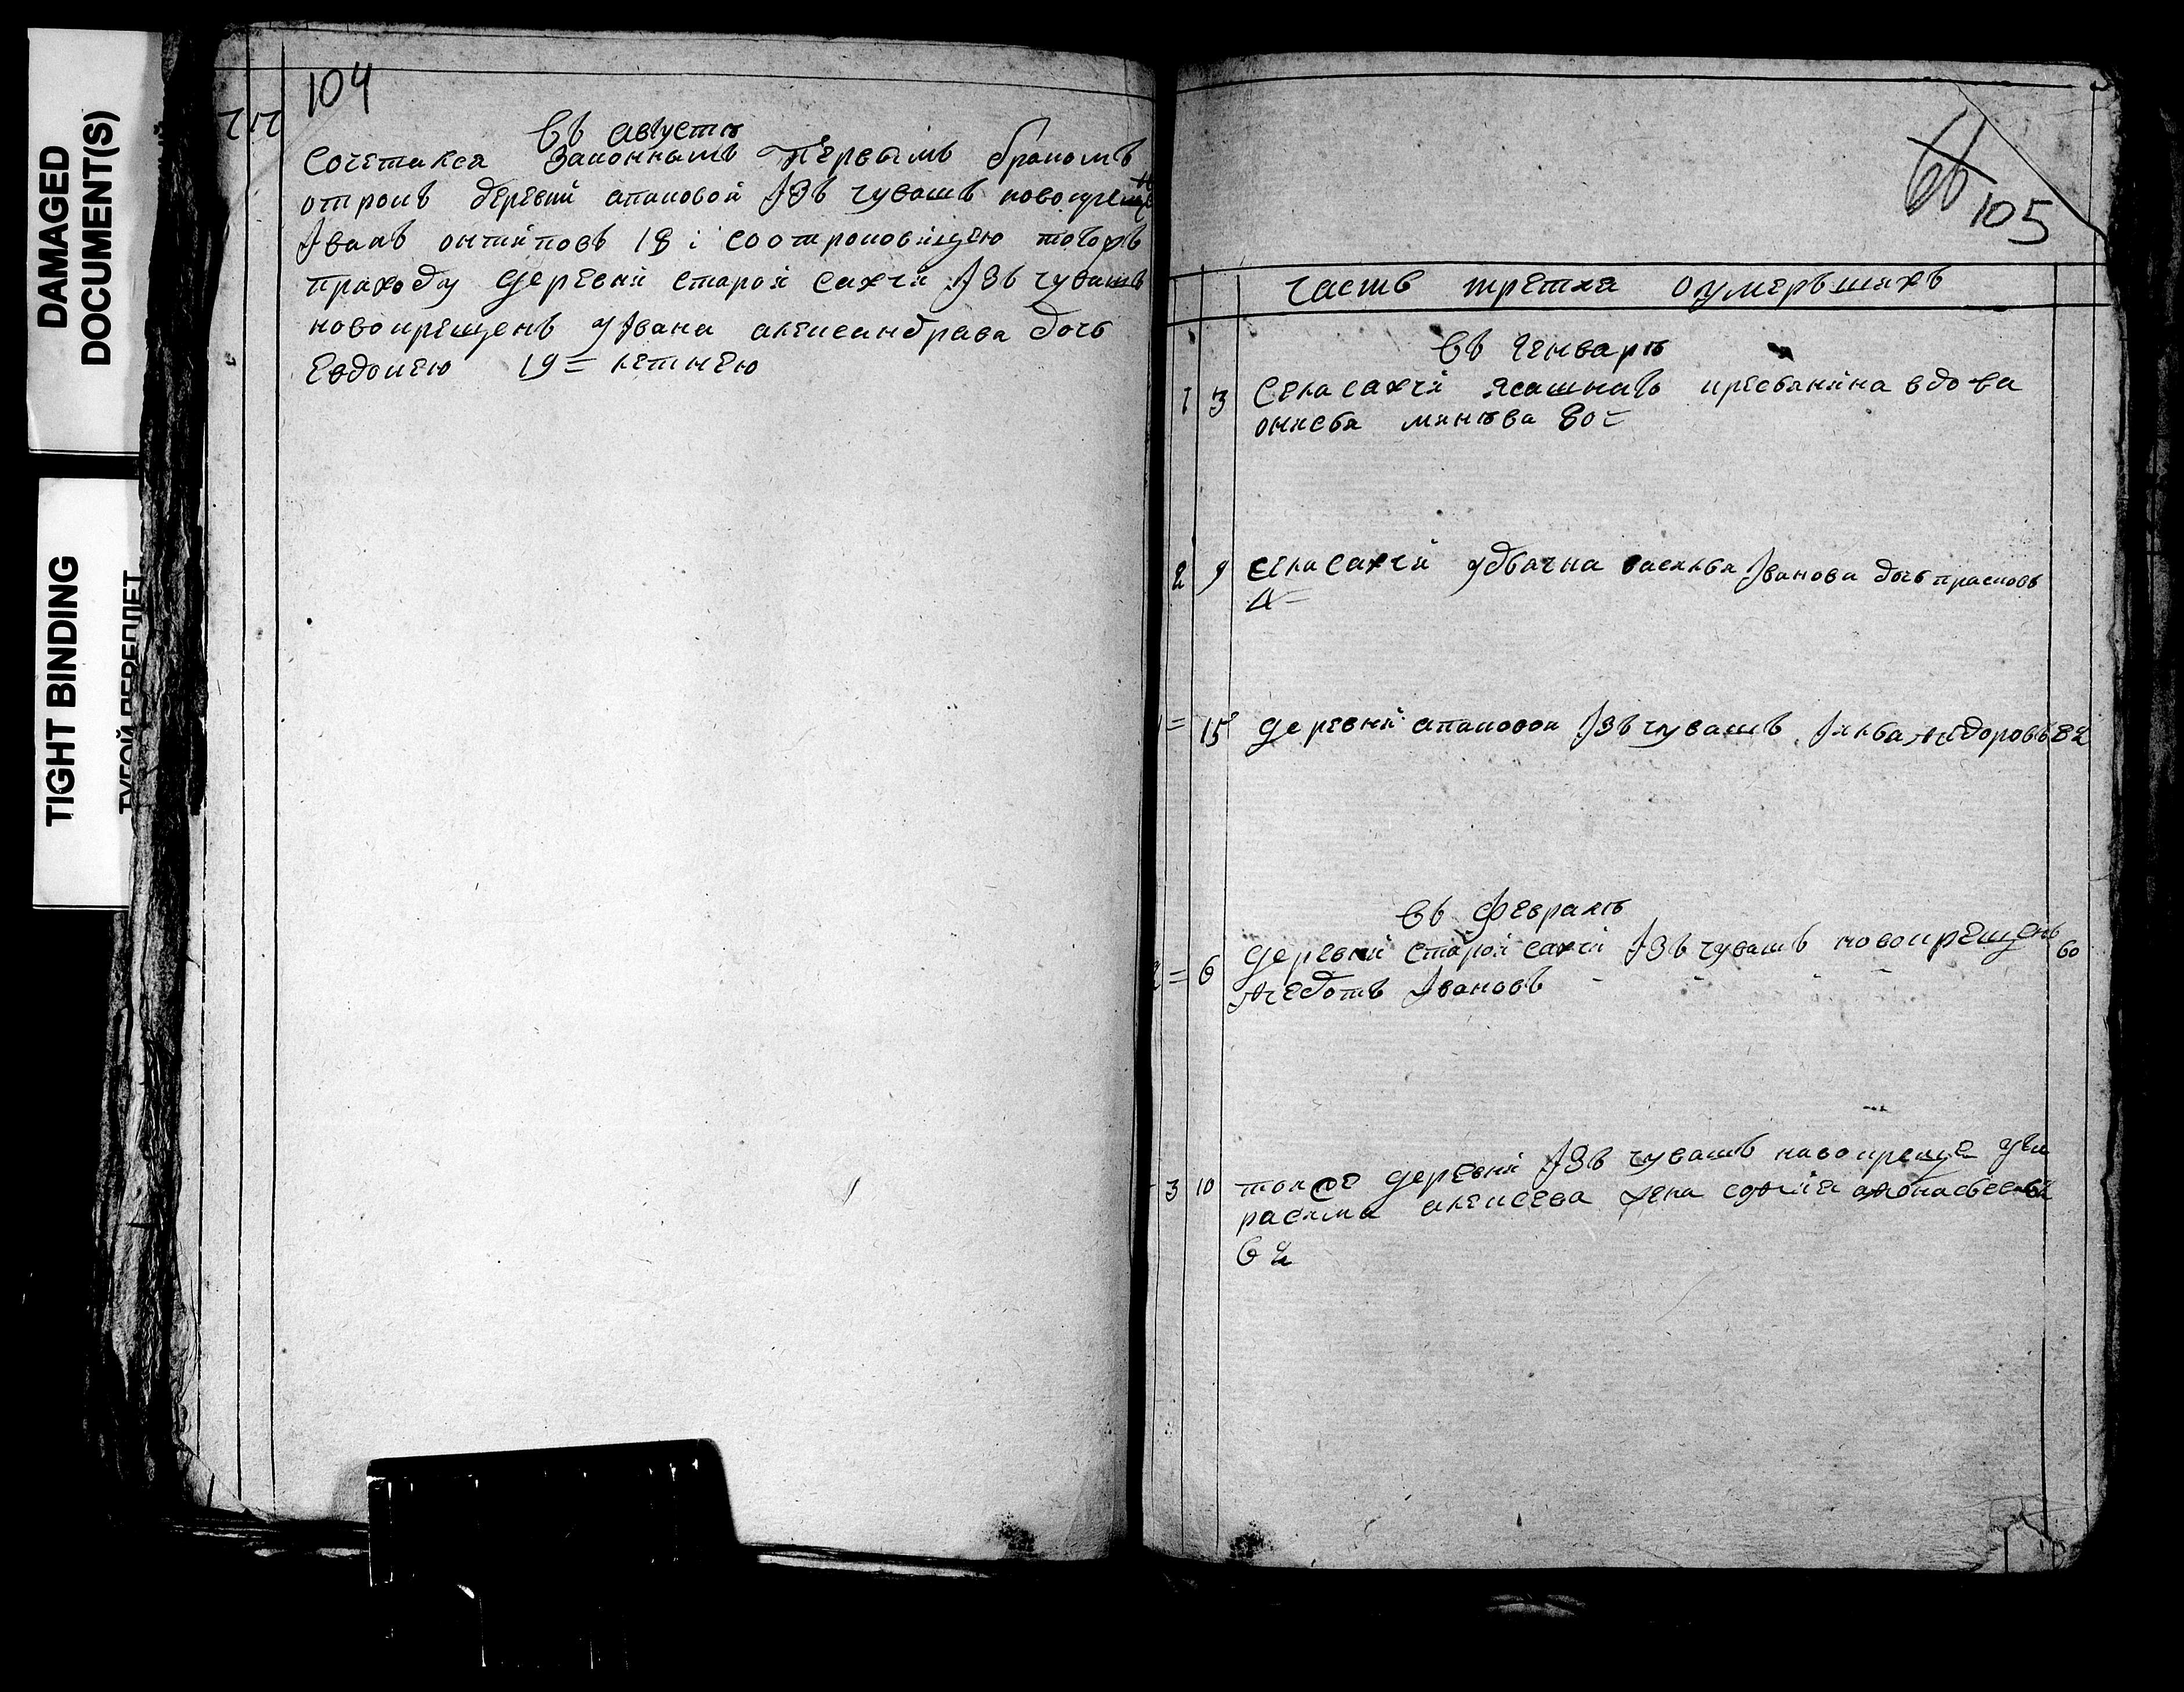 DAMAGED
DOCUMENT(S)
TIGHT BINDING
ТУГОЙ ПЕРЕПЛЕТ
104
въ августѣ
7 17 сочетался законнымъ первымъ бракомъ
отрокъ деревни апаковой Iзъ чувашъ новокреще
Iванъ онтиповъ 18 i соотроковицею тогожъ
приходу деревни старой сахчи Iзъ чувашъ
новокрещенъ у Iвана александрава дочь
Евдокею 19 = летнею
66
105
часть третия оумершихъ
въ генварѣ
1 3 села сахчи ясашнагѡ кресьянина вдова
онисья минѣва 80 =
2 9 села сахчи удьячка василья Iванова дочь прасковь
1 = 15 деревни апаковой Iзъ чувашъ Iлья Ѳидоровъ 82
въ феврале
2 = 6 деревни старой сахчи Iзъ чувашъ новокрещенъ 60
Ѳедотъ Iвановъ
3 10 тояже деревни Iзъ чувашъ новокреще уги
расима алексеева жена
62